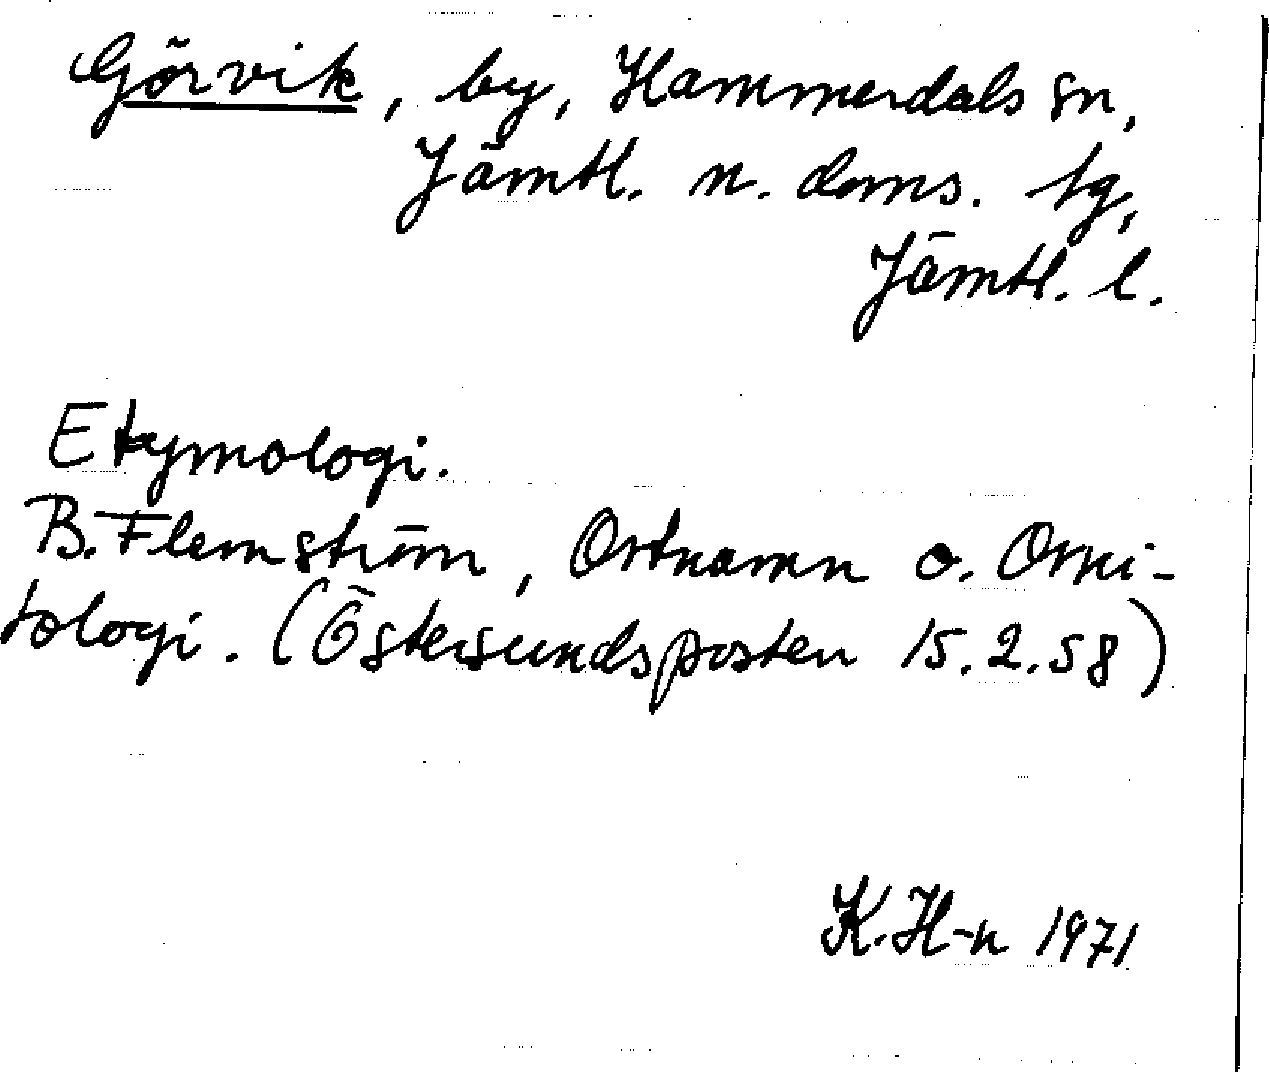 Görvik, by, Hammerdals sn,
Jämtl. n. doms. tg,
Jämtl. l.
Etymologi.
B. Flemström, Ortnamn o. Orni-
tologi. (Östersundsposten 15.2.58)
K.H-n 1971